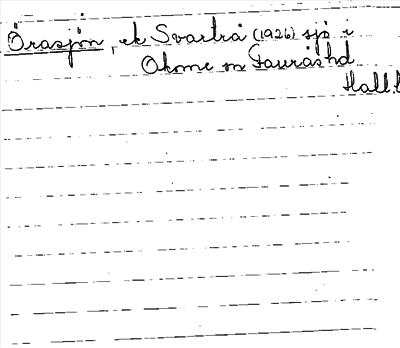 Örasjön, ek Svartrå (1926) sjö i
Okome sn Faurås hd
Hall.l